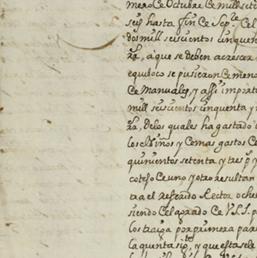 mero ce Octubre ce mill sete
seis hasta fin ce Sepre. cel
dos mill seiscientos cinquenta
ra, a que se deben acrescer
equiboco se pusieron ce meno
ce Manuales, y assi importa
mill seiscientos cinquenta y
ra, Delos quales ha gastado
los niños y cemas gastos ce
quinientos setenta y tres p
cotejo ce uno y otro resultan
era el referido Rector oche
siendo cel agrado ce V.S.S. p
los traiga por primera par
la quenta sigte, y que esta se le